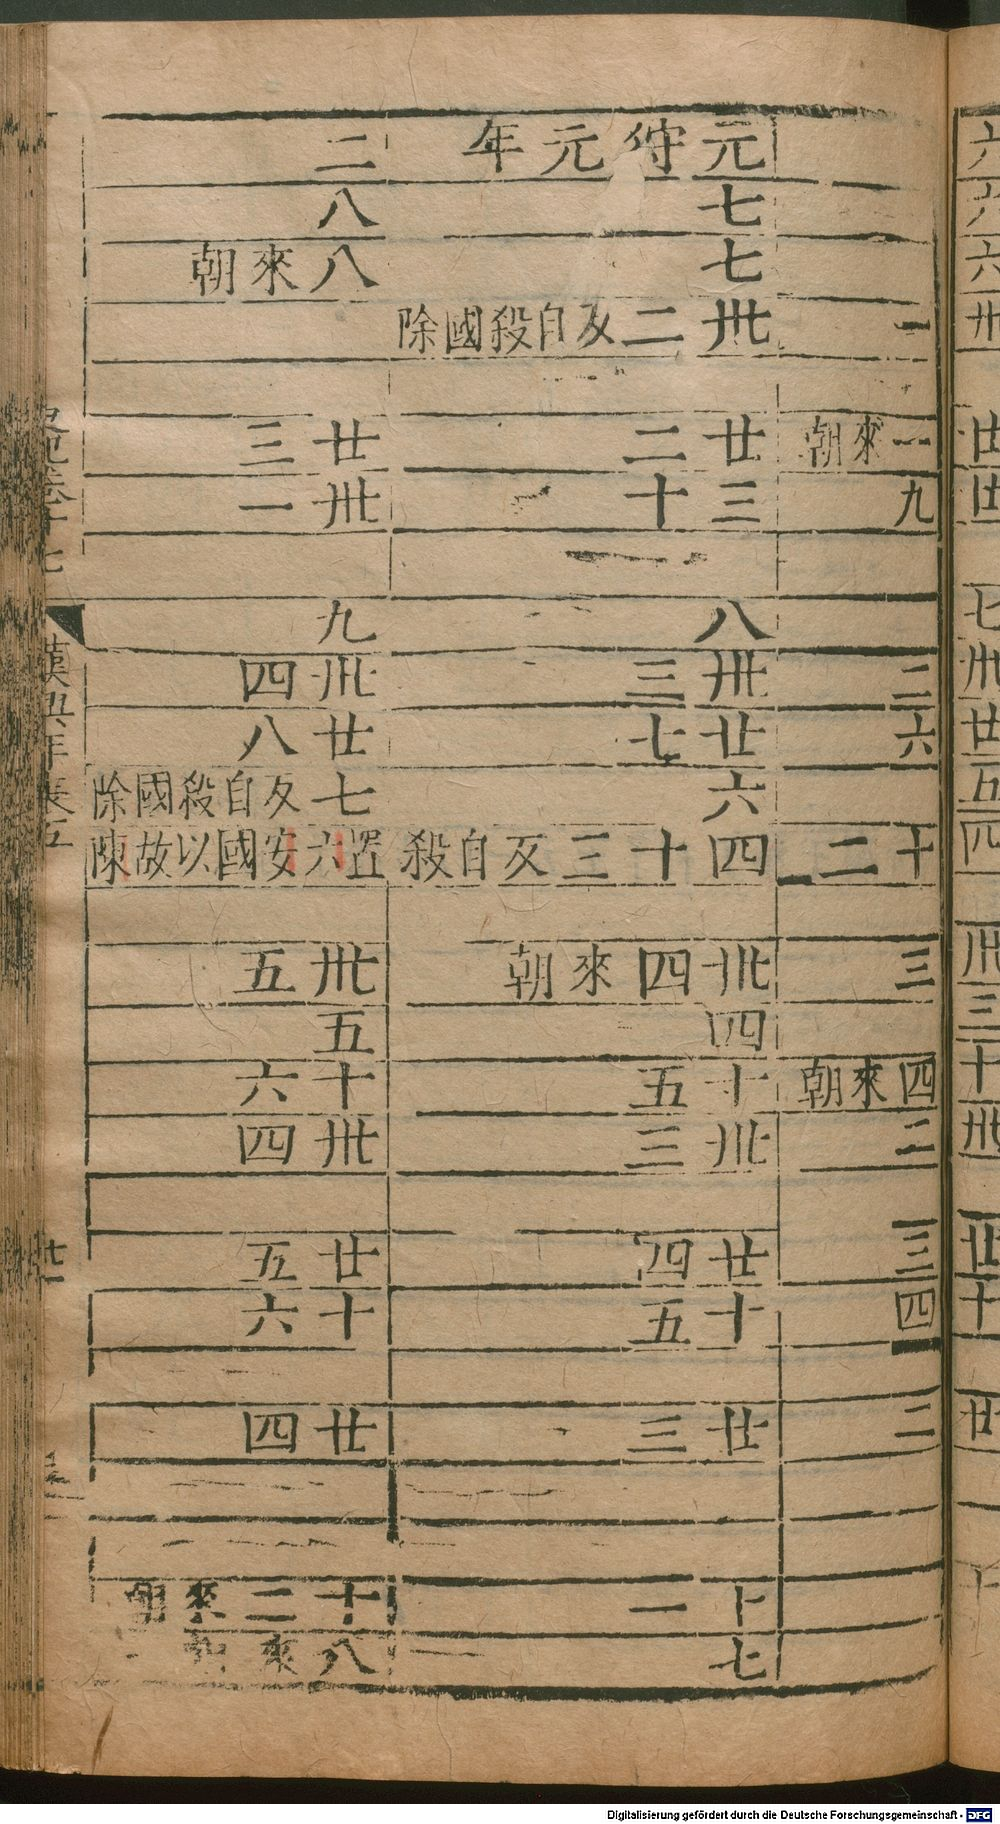 來朝
九
二
六
十二
三
四來朝
二
三
四
二
元狩元年
七
七
卅二反自殺國除
廿二
三十
八
卅三
廿七
六
四十三反自殺
卅四來朝
四
十五
卅三
廿四
十五
廿三
十一
七
二
八
八來朝
廿三
卅一
九
卅四
廿八
七反自殺國除
置六安國以故陳
卅五
五
十六
卅四
廿五
十六
廿四
十二來朝
八來
漢興年表五
Digitalisierung gefördert durch die Deutsche Forschungsgemeinschaft - DFG